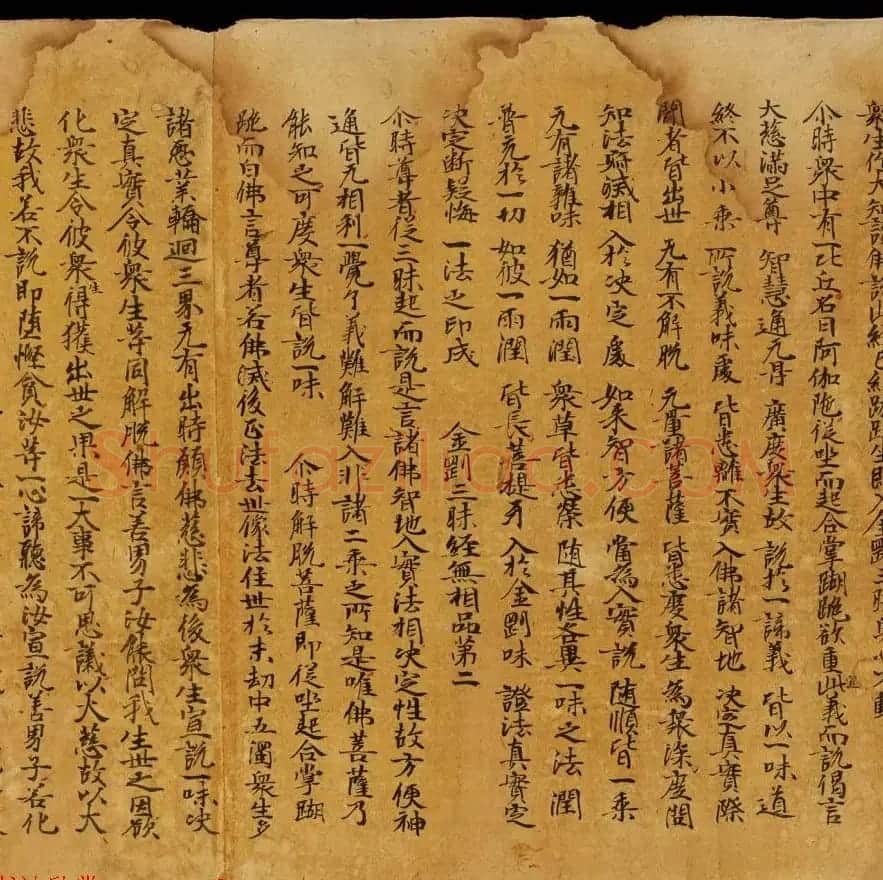 衆生作大知識佛說此經已結跏趺坐即入金剛三昧身心不動
尒時衆中有一比丘名曰阿伽陁從坐而起合掌䠒跪欲重此義而說偈言
大慈滿足尊 智慧通无㝵 廣度衆生故 說於一諦義 皆以一味道
終不以小乘 所說義味處 皆悉離不實 入佛諸智地 決定真實際
聞者皆出世 无有不解脫 无量諸菩薩 皆悉度衆生 為衆深廣問
知法寂滅相 入於決定處 如來智方便 當為入實說 随順皆一乘
无有諸雜味 猶如一雨潤 衆草皆悉榮 随其性各異 一味之法潤
普充於一切 如彼一雨潤 皆長菩提牙 入於金剛味 證法真實定
決定斷疑悔 一法之印成 金剛三昧經無相品第二
尒時尊者從三昧起而說是言諸佛智地入實法相決定性故方便神
通皆无相利一覺了義難解難入非諸二乘之所知是唯佛菩薩乃
能知之可度衆生皆說一味 尒時解脫菩薩即從坐起合掌䠒
跪而白佛言尊者若佛滅後正法去世像法住世於末劫中五濁衆生多
諸惡業輪迴三界无有出時願佛慈悲為後衆生宣說一味決
定真實令彼衆生等同解脫佛言善男子汝能問我生世之因欲
化衆生令彼衆生得獲出世之果是一大事不可思議以大慈故以大
悲故我若不說即墮慳貪汝等一心諦聽為汝宣說善男子若化